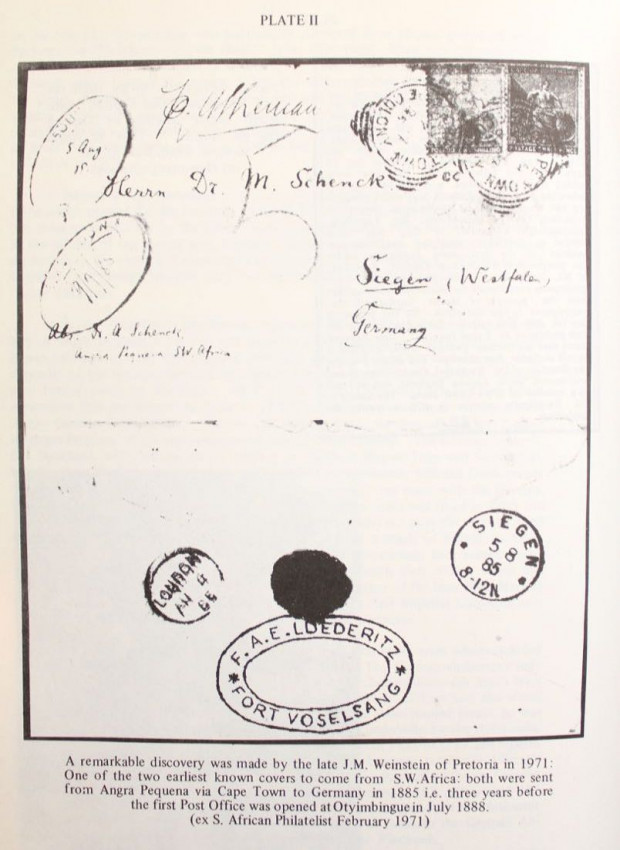 PLATE II
5 Aug
Herrn Dr. M. Schenck
Siegen, (Westfalen)
Germany
Abs. Dr. A Schenck
Angra Pequena SW. Africa
LONDON
SIEGEN
5 8
85
8-12N
F.A.E. LOEDERITZ
FORT VOSELSANG
A remarkable discovery was made by the late J.M. Weinstein of Pretoria in 1971:
One of the two earliest known covers to come from S.W.Africa: both were sent
from Angra Pequena via Cape Town to Germany in 1885 i.e. three years before
the first Post Office was opened at Otyimbingue in July 1888.
(ex S. African Philatelist February 1971)